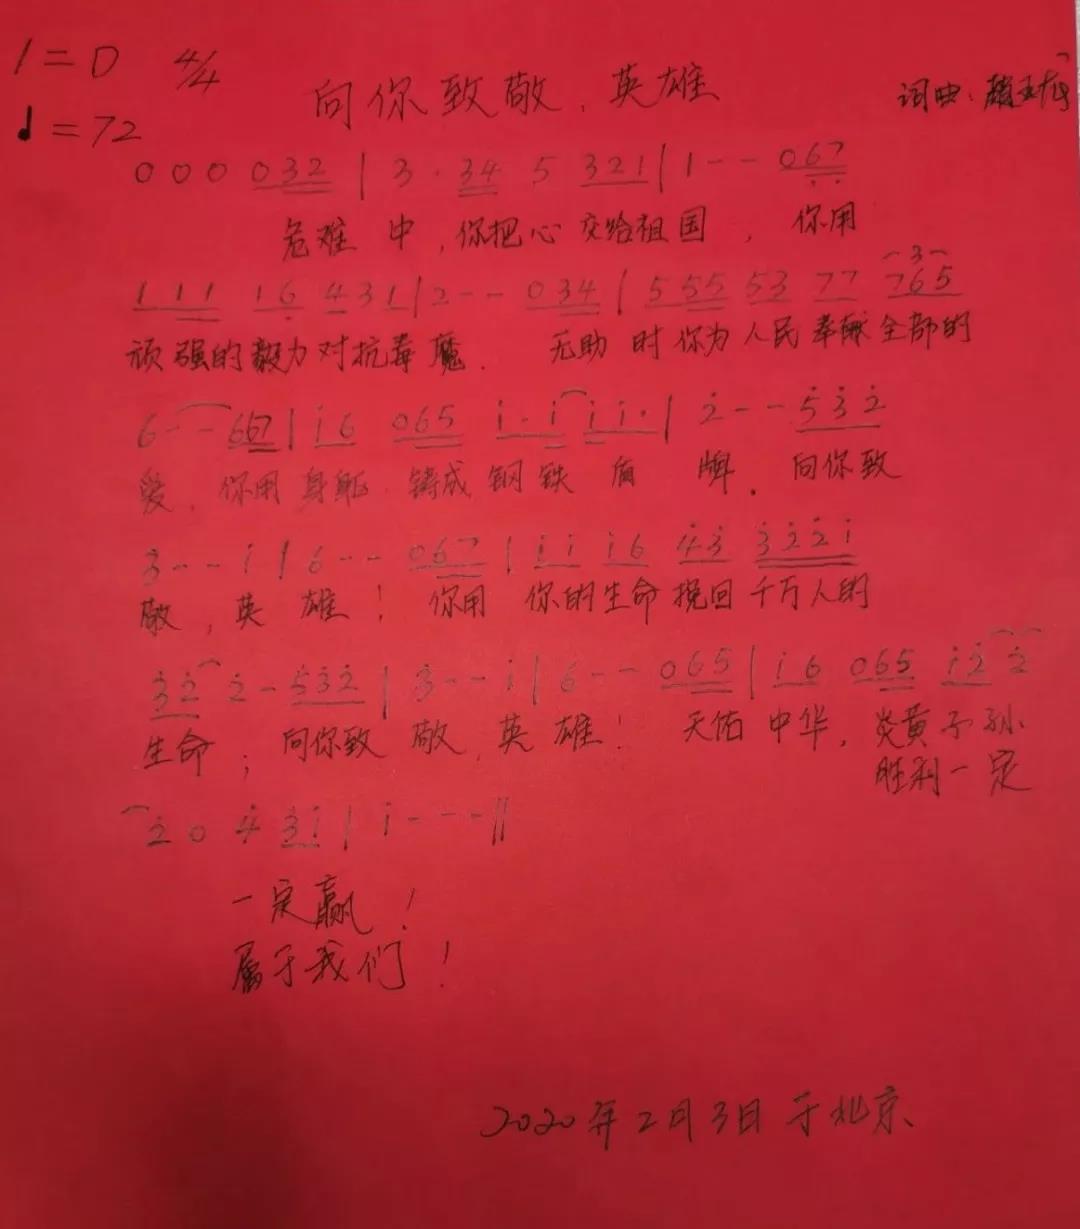 1=D 4/4
♩=72
向你致敬，英雄
词曲：
0 0 0 032 | 3 · 34 5 321 | 1 - - 067
危难中，你把心交给祖国，你用
111 16 431 | 2 - - 034 | 555 53 77 765
顽强的毅力对抗毒魔．无助时你为人民奉献全部的
6 - - 667 | i6 065 i·i ii· | 2 - - 532
爱，你用身躯铸成钢铁盾牌．向你致
3 - - i | 6 - - 067 | ii i6 43 322i
敬，英雄！你用你的生命挽回千万人的
32 2 - 532 | 3 - - i | 6 - - 065 | i6 065 i2 2
生命；向你致敬，英雄！天佑中华，炎黄子孙
胜利一定
2 0 4 3i | i - - - ||
一定赢！
属于我们！
2020年2月3日于北京